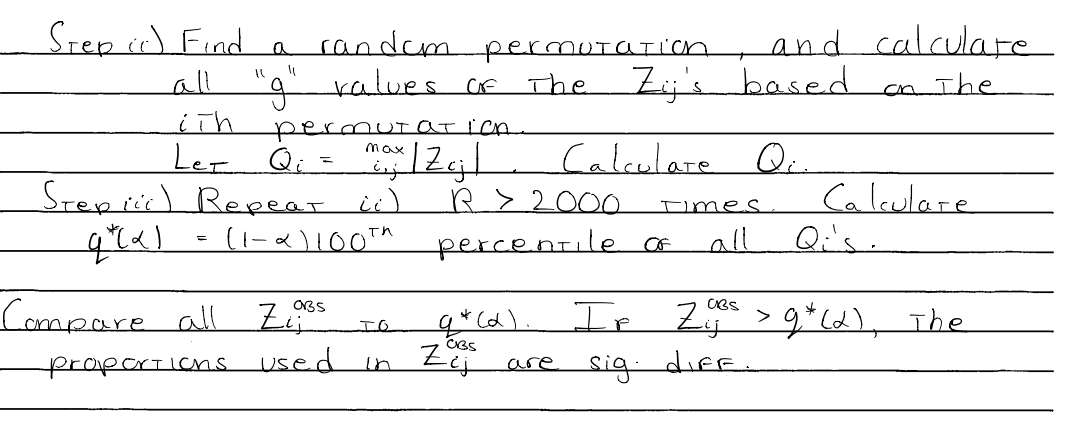 Step ii) Find a random permutation, and calculate
all "g" values of the Zij's based on the
ith permutation.
Let Qi = max i,j |Zij|. Calculate Qi.
Step iii) Repeat ii) R > 2000 times. Calculate
q*(α) = (1-α)100th percentile of all Qi's.
Compare all Zij^OBS to q*(α). If Zij^OBS > q*(α), the
proportions used in Zij^OBS are sig. diff.